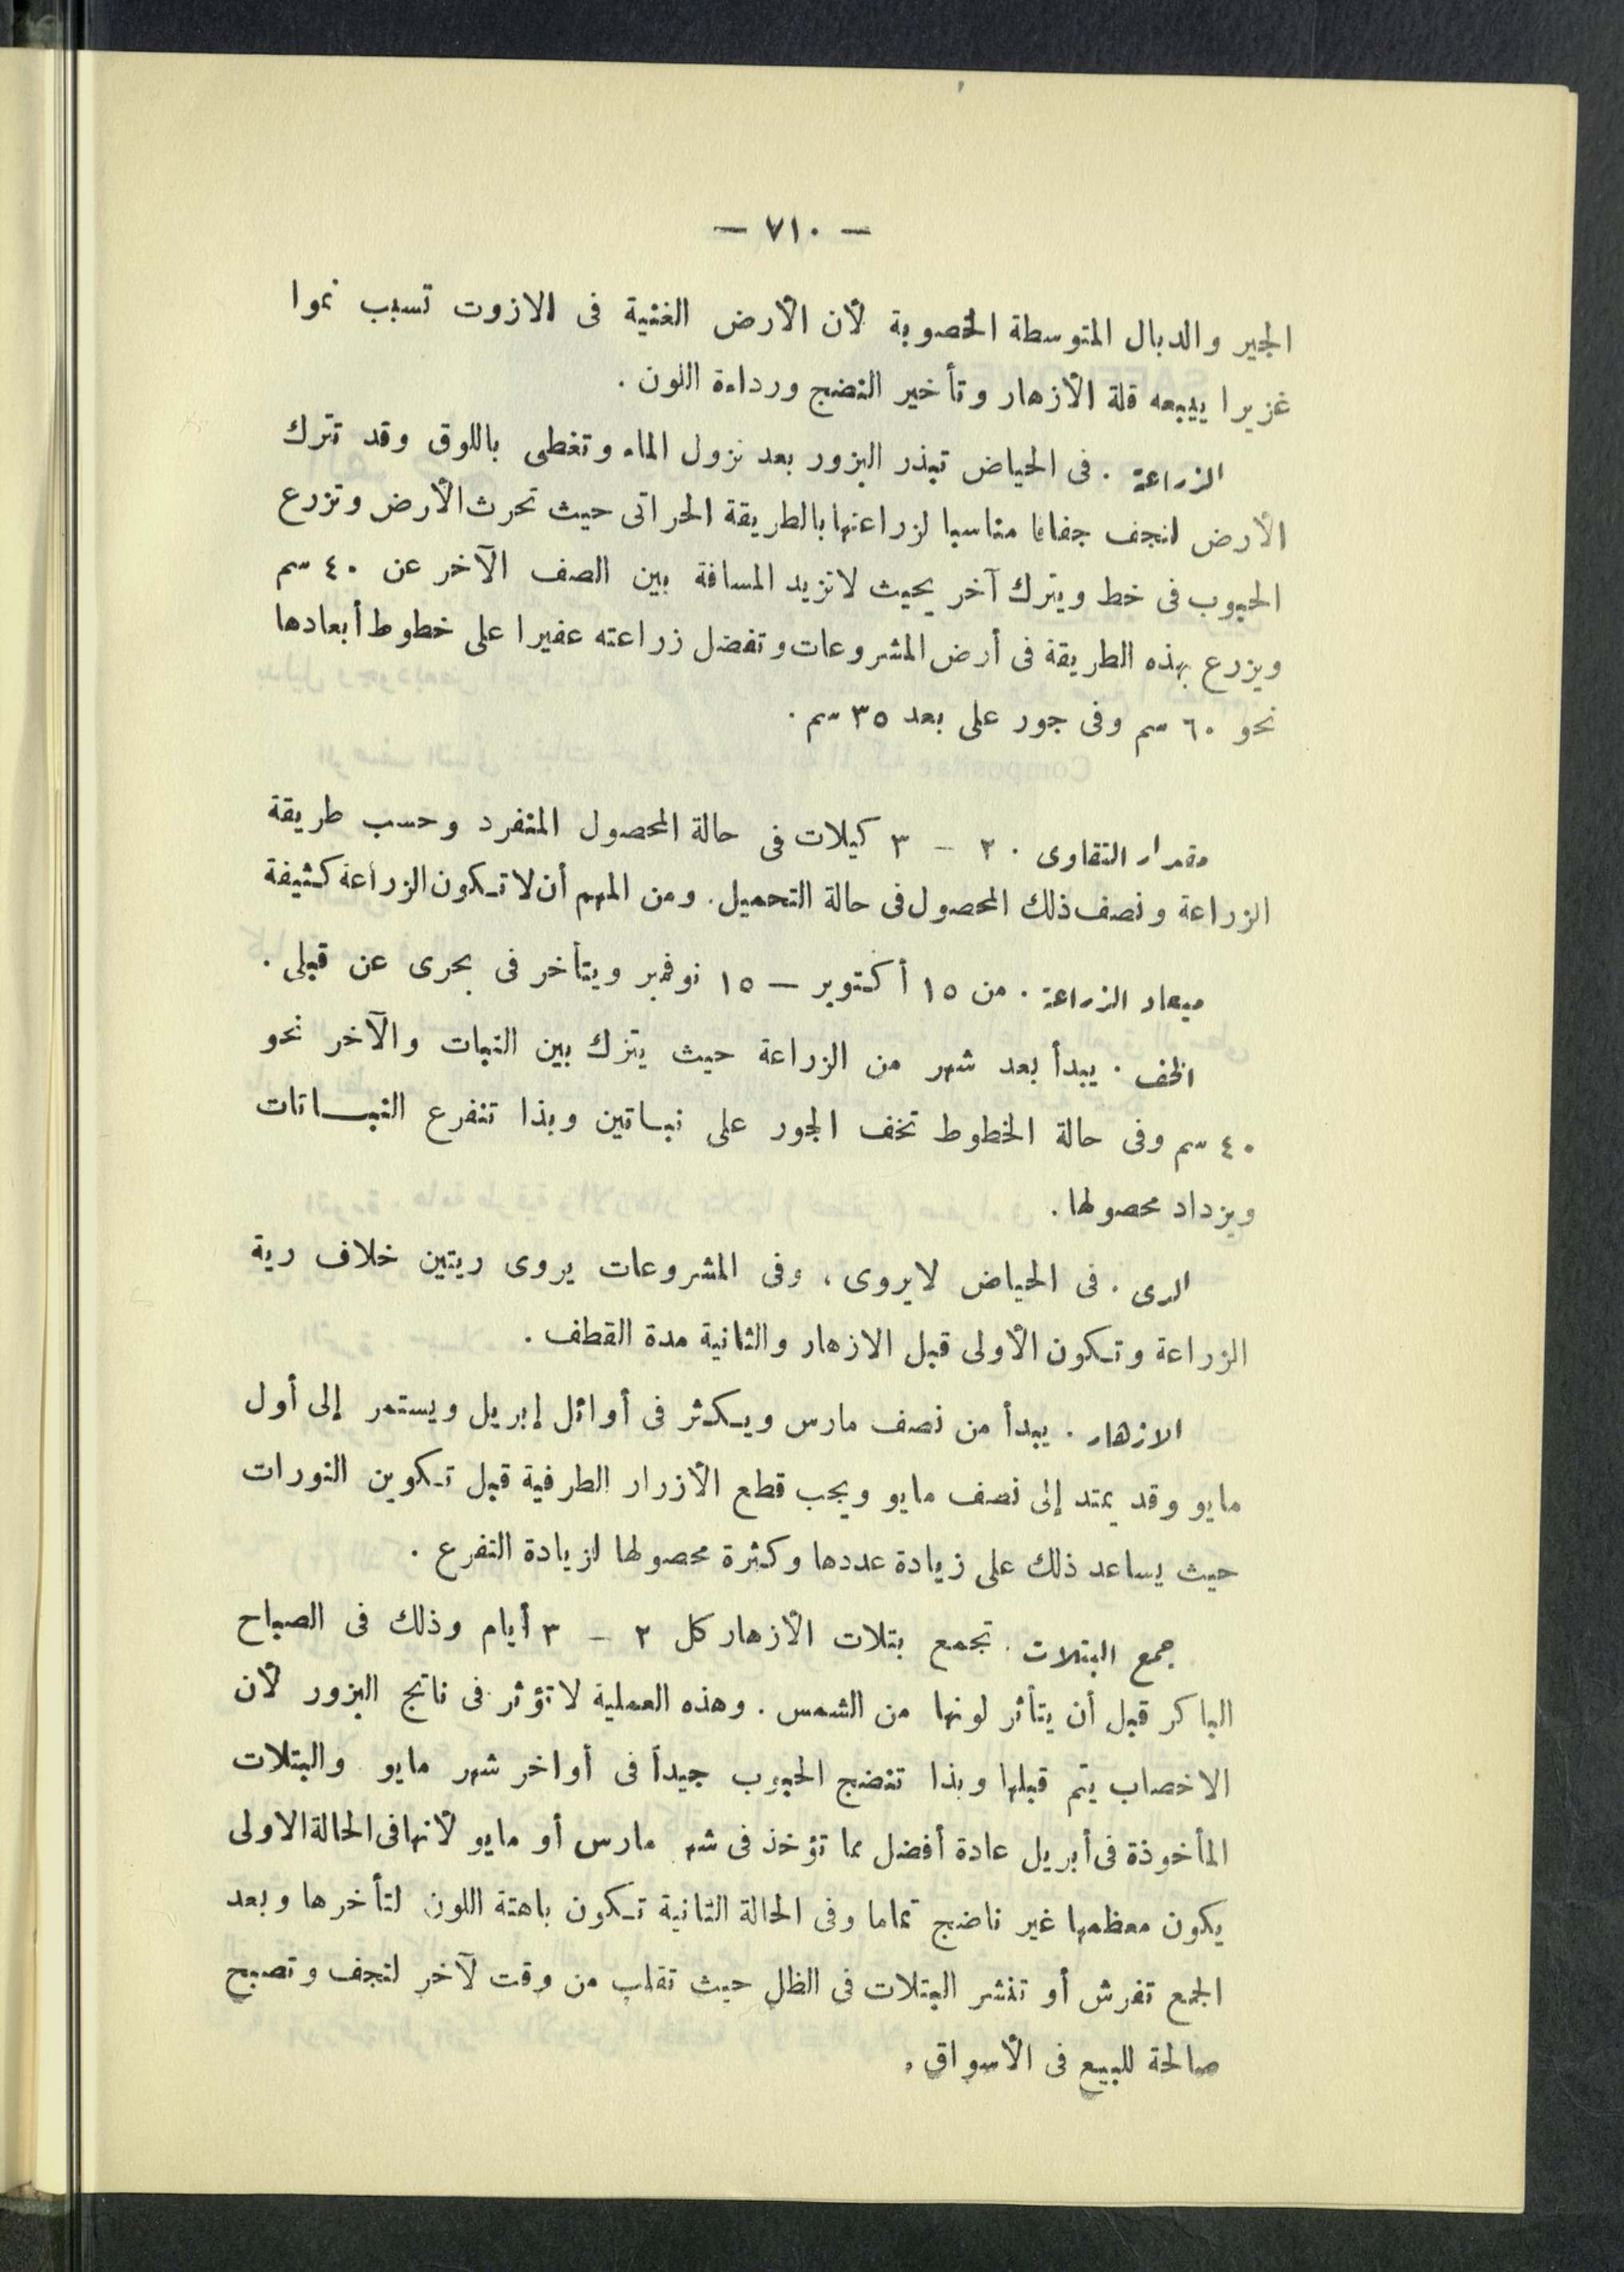 — ٧١٠ —
الجير والدبال المتوسطة الخصوبة لأن الأرض الغنية فى الازوت تسبب نموا
غزيرا يتبعه قلة الأزهار وتأخير النضج ورداءة اللون .
الزراعة . فى الحياض تبذر البزور بعد نزول الماء وتغطى باللوق وقد تترك
الأرض لتجف جفافا مناسبا لزراعتها بالطريقة الحراتى حيث تحرث الأرض وتزرع
الحبوب فى خط ويترك آخر بحيث لا تزيد المسافة بين الصف الآخر عن ٤٠ سم
ويزرع بهذه الطريقة فى أرض المشروعات وتفضل زراعته عفيرا على خطوط أبعادها
نحو ٦٠ سم وفى جور على بعد ٣٥ سم .
مقدار التقاوى . ٢ – ٣ كيلات فى حالة المحصول المنفرد وحسب طريقة
الزراعة ونصف ذلك المحصول فى حالة التحميل . ومن المهم أن لا تكون الزراعة كثيفة
ميعاد الزراعة . من ١٥ أكتوبر — ١٥ نوفمبر ويتأخر فى بحرى عن قبلى .
الخف . يبدأ بعد شهر من الزراعة حيث يترك بين النبات والآخر نحو
٤٠ سم وفى حالة الخطوط تخف الجور على نباتين وبذا تتفرع النباتات
ويزداد محصولها .
الرى . فى الحياض لا يروى ، وفى المشروعات يروى ريتين خلاف رية
الزراعة وتكون الأولى قبل الازهار والثانية مدة القطف .
الازهار . يبدأ من نصف مارس ويكثر فى أوائل إبريل ويستمر إلى أول
مايو وقد يمتد إلى نصف مايو ويجب قطع الأزرار الطرفية قبل تكوين النورات
حيث يساعد ذلك على زيادة عددها وكثرة محصولها لزيادة التفرع .
جمع البتلات . تجمع بتلات الأزهار كل ٢ – ٣ أيام وذلك فى الصباح
الباكر قبل أن يتأثر لونها من الشمس . وهذه العملية لا تؤثر فى ناتج البزور لأن
الاخصاب يتم قبلها وبذا تنضج الحبوب جيداً فى أواخر شهر مايو والبتلات
المأخوذة فى أبريل عادة أفضل مما تؤخذ فى شهر مارس أو مايو لأنها فى الحالة الاولى
يكون معظمها غير ناضج تماما وفى الحالة الثانية تكون باهتة اللون لتأخرها وبعد
الجمع تفرش أو تنشر البتلات فى الظل حيث تقلب من وقت لآخر لتجف وتصبح
صالحة للبيع فى الأسواق .